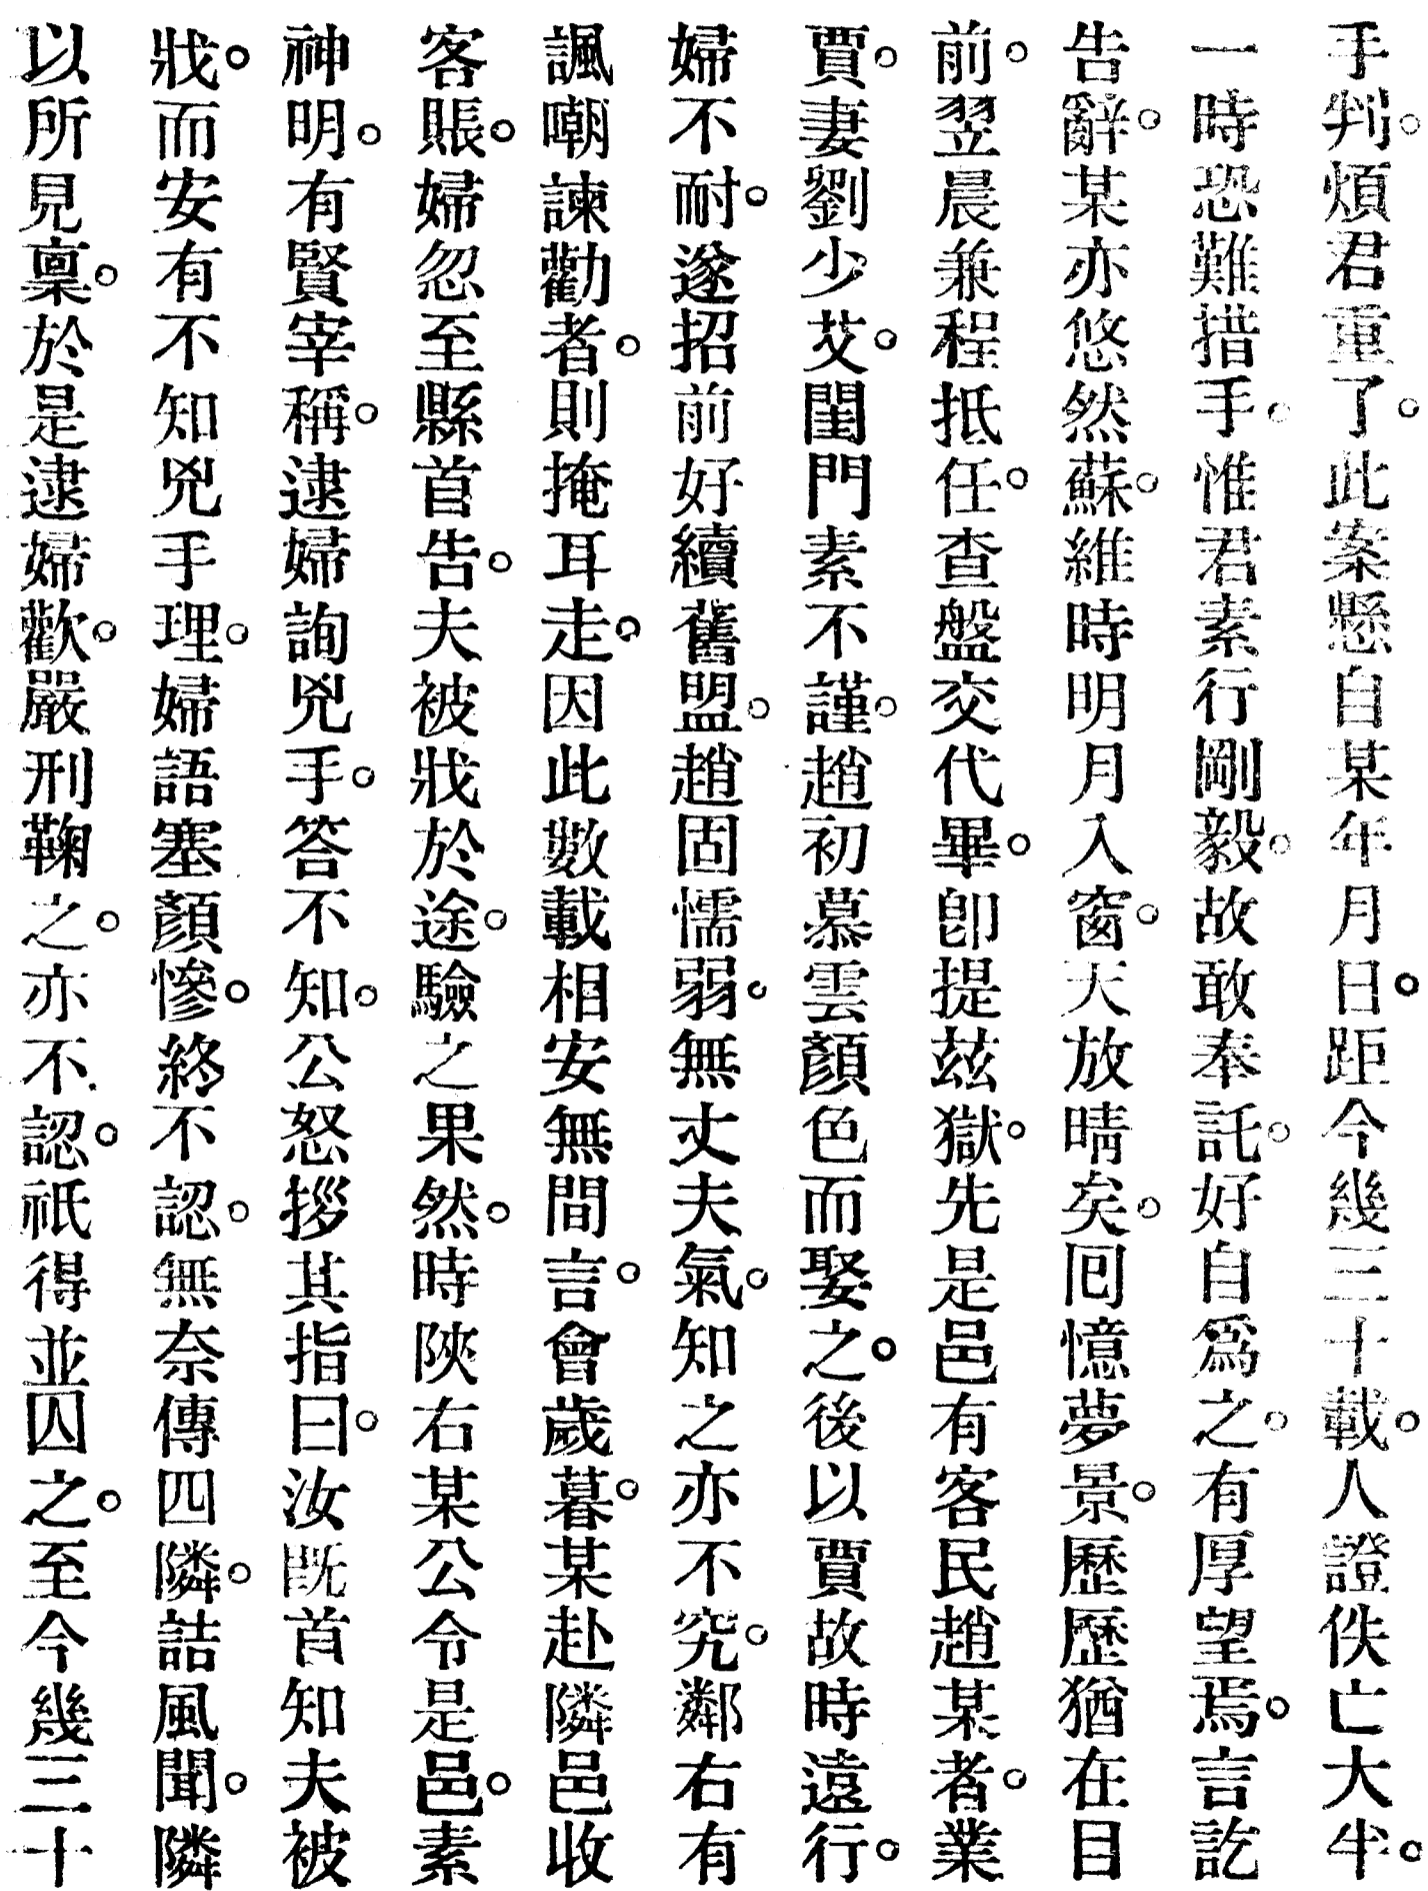 手判。煩君重了。此案懸自某年月日。距今幾三十載。人證佚亡大半。
一時恐難措手。惟君素行剛毅。故敢奉託。好自爲之。有厚望焉。言訖
告辭。某亦悠然蘇。維時明月入窗。天放晴矣。囘憶夢景。歷歷猶在目
前。翌晨兼程抵任。查盤交代畢。卽提茲獄。先是邑有客民趙某者。業
賈。妻劉少艾。閨門素不謹。趙初慕雲顏色而娶之。後以賈故時遠行。
婦不耐。遂招前好續舊盟。趙固懦弱。無丈夫氣。知之亦不究。鄰右有
諷嘲諫勸者。則掩耳走。因此數載相安無間言。會歲暮。某赴隣邑收
客賬。婦忽至縣首告。夫被戕於途。驗之果然。時陝右某公令是邑。素
神明。有賢宰稱。逮婦詢兇手。答不知。公怒拶其指曰。汝既首知夫被
戕。而安有不知兇手理。婦語塞顏慘。終不認。無奈傳四隣。詰風聞。隣
以所見稟。於是逮婦歡。嚴刑鞠之。亦不認。祇得並囚之。至今幾三十